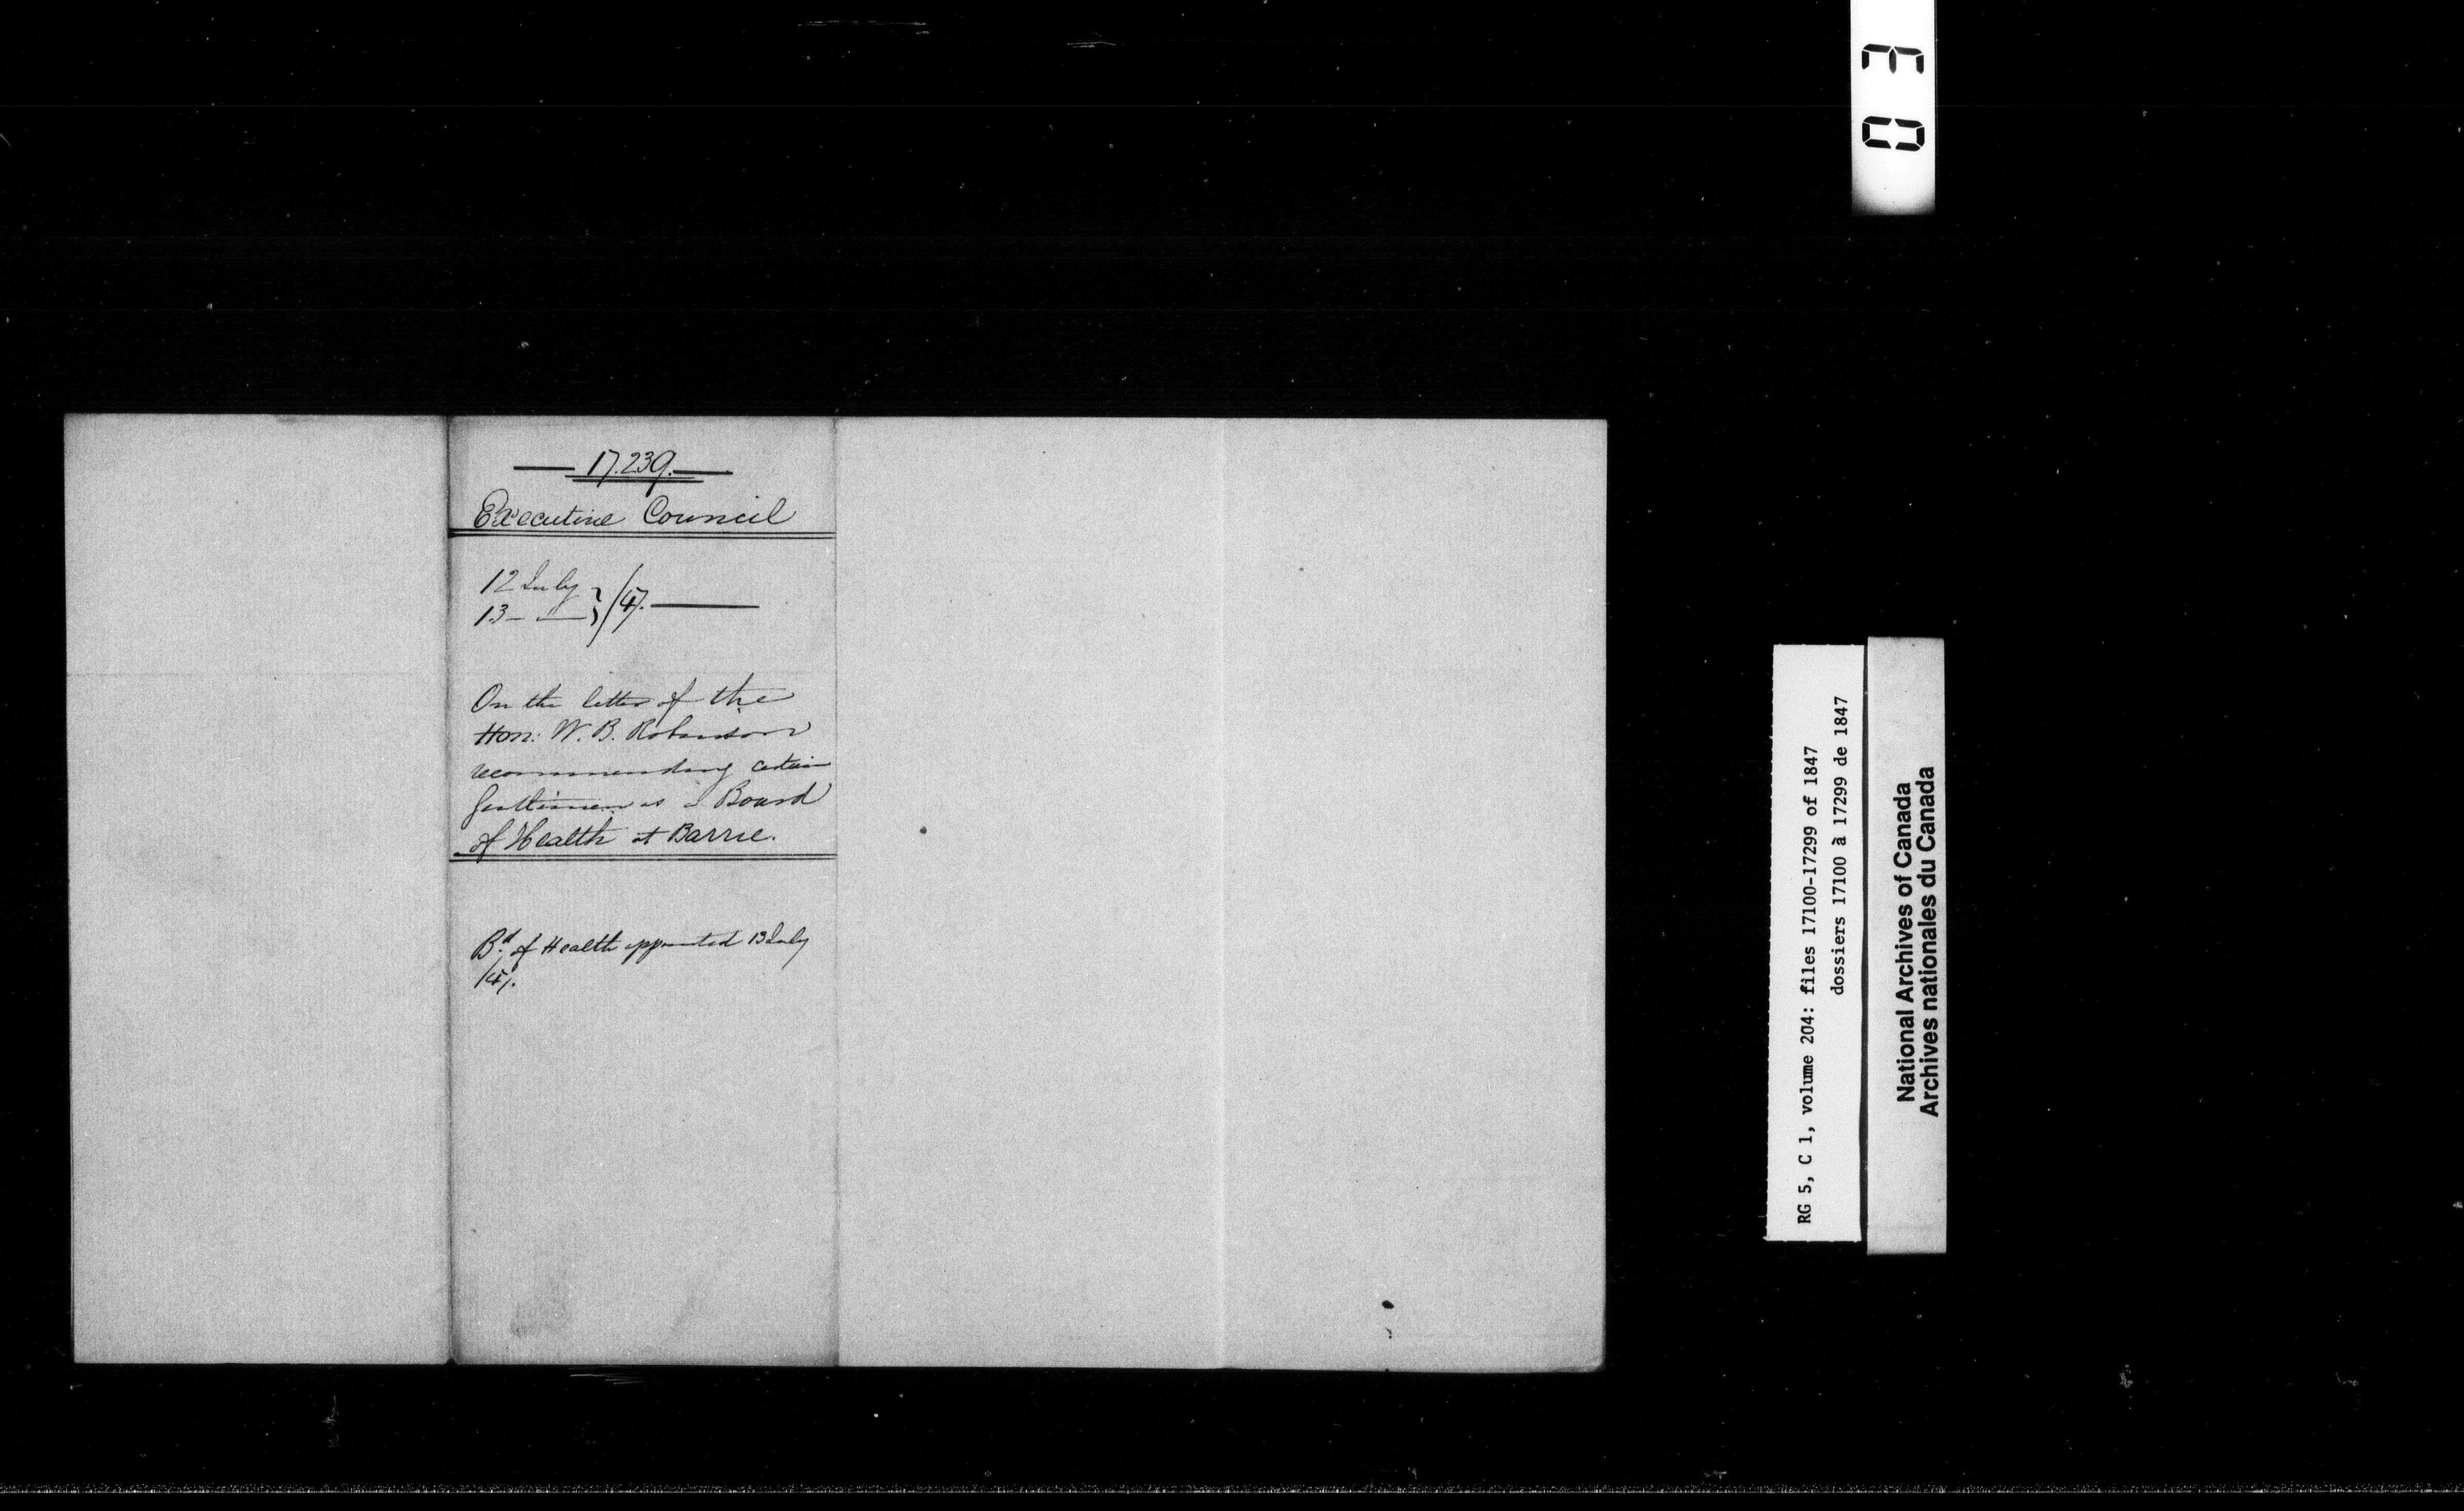 17.239.
Executive Council
12 July } /47.
13 — " }
On the letter of the
Hon: W. B. Robinson
recommending certain
Gentlemen as a Board
of Health at Barrie.
Bd. of Health appointed 13 July
/47.
03
RG 5, C 1, volume 204: files 17100-17299 of 1847
dossiers 17100 à 17299 de 1847
National Archives of Canada
Archives nationales du Canada